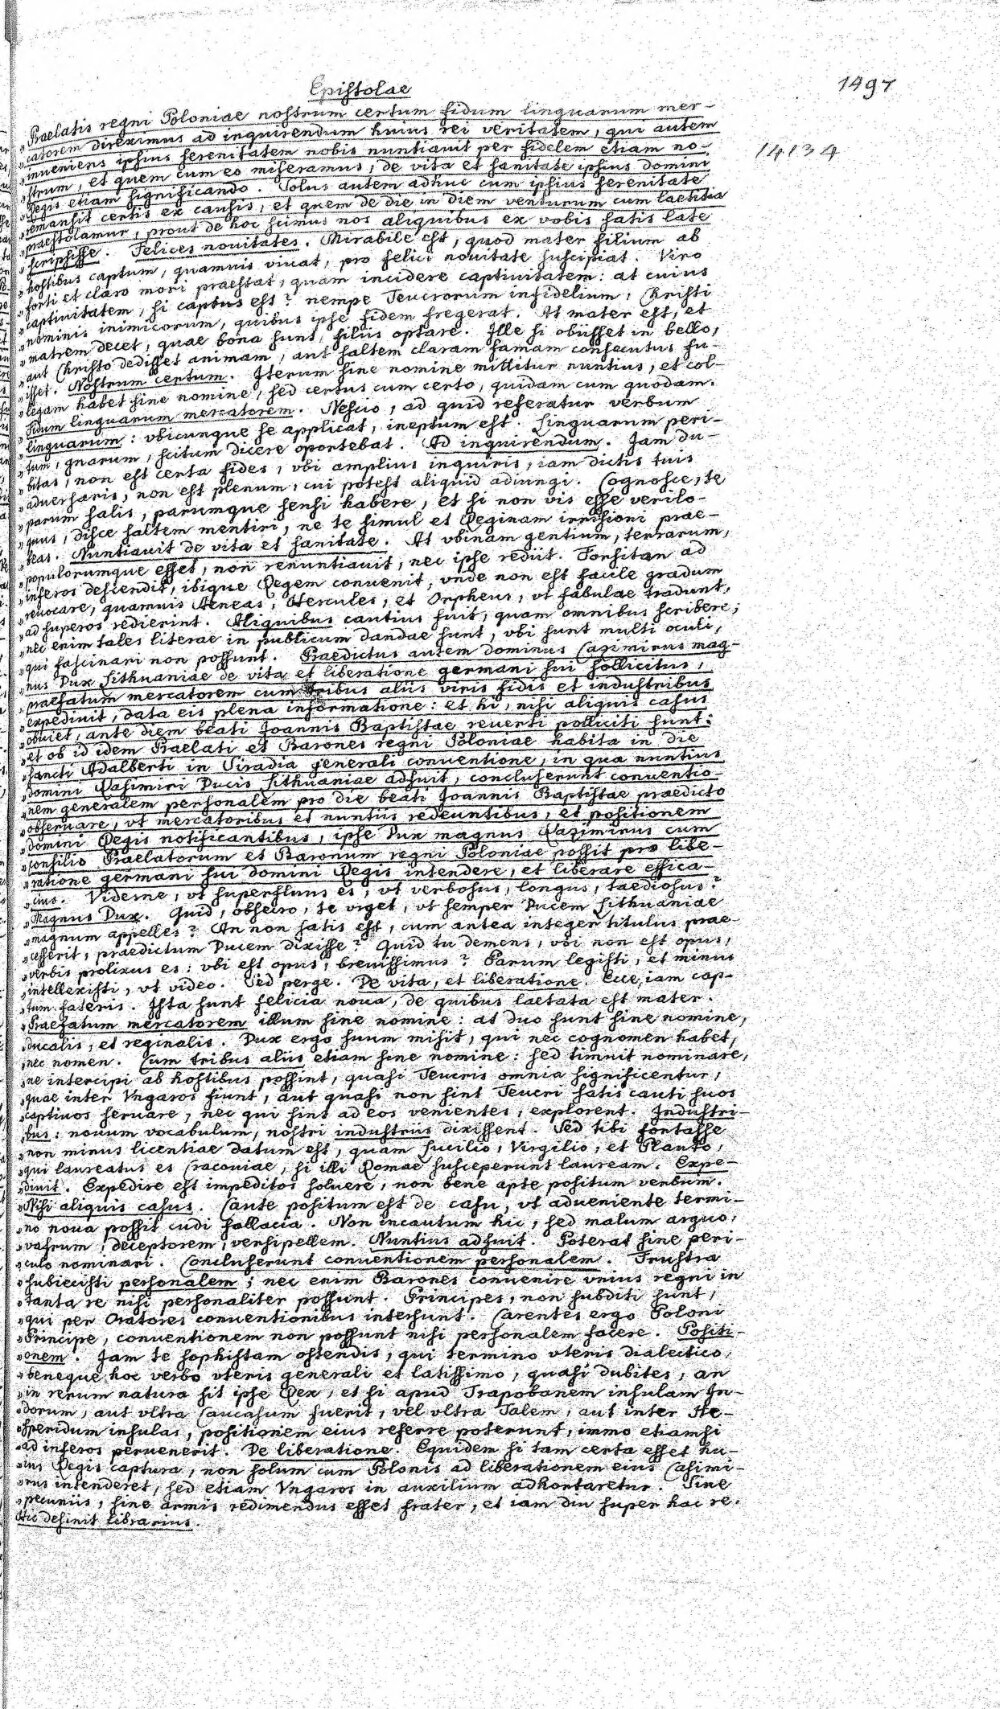 Epistolae
1497
„Praelatis regni Poloniae nostrum certum fidum linguarum mer-
„catorem direximus ad inquirendum huius rei veritatem, qui autem
14134
„inveniens ipsius serenitatem nobis nuntiauit per fidelem etiam no-
„strum, et quem cum eo miseramus, de vita et sanitate ipsius domini
„Regis etiam significando. Solus autem adhuc cum ipsius serenitate
„remansit certis ex causis, et quem de die in diem venturum cum laetitia
„praestolamur, prout de hoc scimus nos aliquibus ex vobis satis late
„scripsisse. Felices nouitates. Mirabile est, quod mater filium ab
„hostibus captum, quamuis viuat, pro felici nouitate suscipiat. Viro
„forti et claro mori praestat, quam incidere captiuitatem: at cuius
„captiuitatem, si captus est? nempe Teucrorum infidelium, Christi
„nominis inimicorum, quibus ipse fidem fregerat. At mater est, et
„matrem decet, quae bona sunt, filiis optare. Ille si obiisset in bello,
„aut Christo dedisset animam, aut saltem claram famam consecutus fu-
„isset. Nostrum certum. Iterum sine nomine mittitur nuntius, et col-
„legam habet sine nomine, sed certus cum certo, quidam cum quodam.
„Fidum linguarum mercatorem. Nescio, ad quid referatur verbum
„linguarum: vbicunque se applicat, ineptum est. Linguarum peri-
„tum, gnarum, scitum dicere oportebat. Ad inquirendum. Jam du-
„bitas, non est certa fides, vbi amplius inquiris, iam dictis tuis
„aduersaris, non est plenum, cui potest aliquid adiungi. Cognosce, te
„parum salis, parumque sensi habere, et si non vis esse verilo-
„quus, disce saltem mentiri, ne te simul et Reginam irrisioni prae-
„beas. Nuntiauit de vita et sanitate. At vbinam gentium, terrarum,
„populorumque esset, non renuntiauit, nec ipse rediit. Forsitan ad
„inferos descendit, ibique Regem conuenit, vnde non est facile gradum
„reuocare, quamuis Aeneas, Hercules, et Orpheus, vt fabulae tradunt,
„ad superos redierint. Aliquibus cautius fuit, quam omnibus scribere;
„nec enim tales literae in publicum dandae sunt, vbi sunt multi oculi,
„qui fascinari non possunt. Praedictus autem dominus Casimirus mag-
„nus Dux Lithuaniae de vita et liberatione germani sui sollicitus,
„praefatum mercatorem cum tribus aliis viris fidis et industribus
„expediuit, data eis plena informatione: et hi, nisi aliquis casus
„obuiet, ante diem beati Joannis Baptistae reuerti polliciti sunt:
„et ob id idem Praelati et Barones regni Poloniae habita in die
„sancti Adalberti in Siradia generali conuentione, in qua nuntius
„domini Casimiri Ducis Lithuaniae adfuit, concluserunt conuentio-
„nem generalem personalem pro die beati Joannis Baptistae praedicto
„obseruare, vt mercatoribus et nuntiis redeuntibus, et positionem
„domini Regis notificantibus, ipse Dux magnus Cazimirus cum
„consilio Praelatorum et Baronum regni Poloniae possit pro libe-
„ratione germani sui domini Regis intendere, et liberare effica-
„cius. Videsne, vt superfluus es, vt verbosus, longus, taediosus?
„Magnus Dux. Quid, obsecro, te vrget, vt semper Ducem Lithuaniae
„magnum appelles? An non satis est, cum antea integer titulus prae-
„cesserit, praedictum Ducem dixisse? Quid tu demens, vbi non est opus,
„verbis prolixus es: vbi est opus, breuissimus? Parum legisti, et minus
„intellexisti, vt video. Sed perge. De vita, et liberatione. Ecce, iam cap-
„tum fateris. Ista sunt felicia noua, de quibus laetata est mater.
„Praefatum mercatorem illum sine nomine: at duo sunt sine nomine,
„ducalis, et reginalis. Dux ergo suum misit, qui nec cognomen habet,
„nec nomen. Cum tribus aliis etiam sine nomine: sed timuit nominare,
„ne intercipi ab hostibus possint, quasi Teucris omnia significentur,
„quae inter Vngaros fiunt, aut quasi non sint Teucri satis cauti suos
„captiuos seruare, nec qui sint ad eos venientes, explorent. Industri-
„bus: nouum vocabulum, nostri industriis dixissent. Sed tibi fortasse
„non minus licentiae datum est, quam Lucilio, Virgilio, et Planto,
„qui laureatus es Cracouiae, si illi Romae susceperunt lauream. Expe-
„diuit. Expedire est impeditos soluere, non bene apte positum verbum.
„Nisi aliquis casus. Caute positum est de casu, vt adueniente termi-
„no noua possit cudi fallacia. Non incautum hic, sed malum arguo,
„vafrum, deceptorem, versipellem. Nuntius adfuit. Poterat sine peri-
„culo nominari. Concluserunt conuentionem personalem. Frustra
„subiecisti personalem; nec enim Barones conuenire vnius regni in
„tanta re nisi personaliter possunt. Principes, non subditi sunt,
„qui per Oratores conuentionibus intersunt. Carentes ergo Poloni
„Principe, conuentionem non possunt nisi personalem facere. Positi-
„onem. Jam te sophistam ostendis, qui termino vteris dialectico,
„beneque hoc verbo vteris generali et latissimo, quasi dubites, an
„in rerum natura sit ipse Rex, et si apud Trapobanem insulam In-
„dorum, aut vltra Caucasum fuerit, vel vltra Talem, aut inter He-
„speridum insulas, positionem eius referre poterunt, immo etiamsi
„ad inferos peruenerit. De liberatione. Equidem si tam certa esset hu-
„ius Regis captura, non solum cum Polonis ad liberationem eius Casimi-
„rus intenderet, sed etiam Vngaros in auxilium adhortaretur. Sine
„pecuniis, sine armis redimendus esset frater, et iam diu super hac re.
Hic desinit librarius.